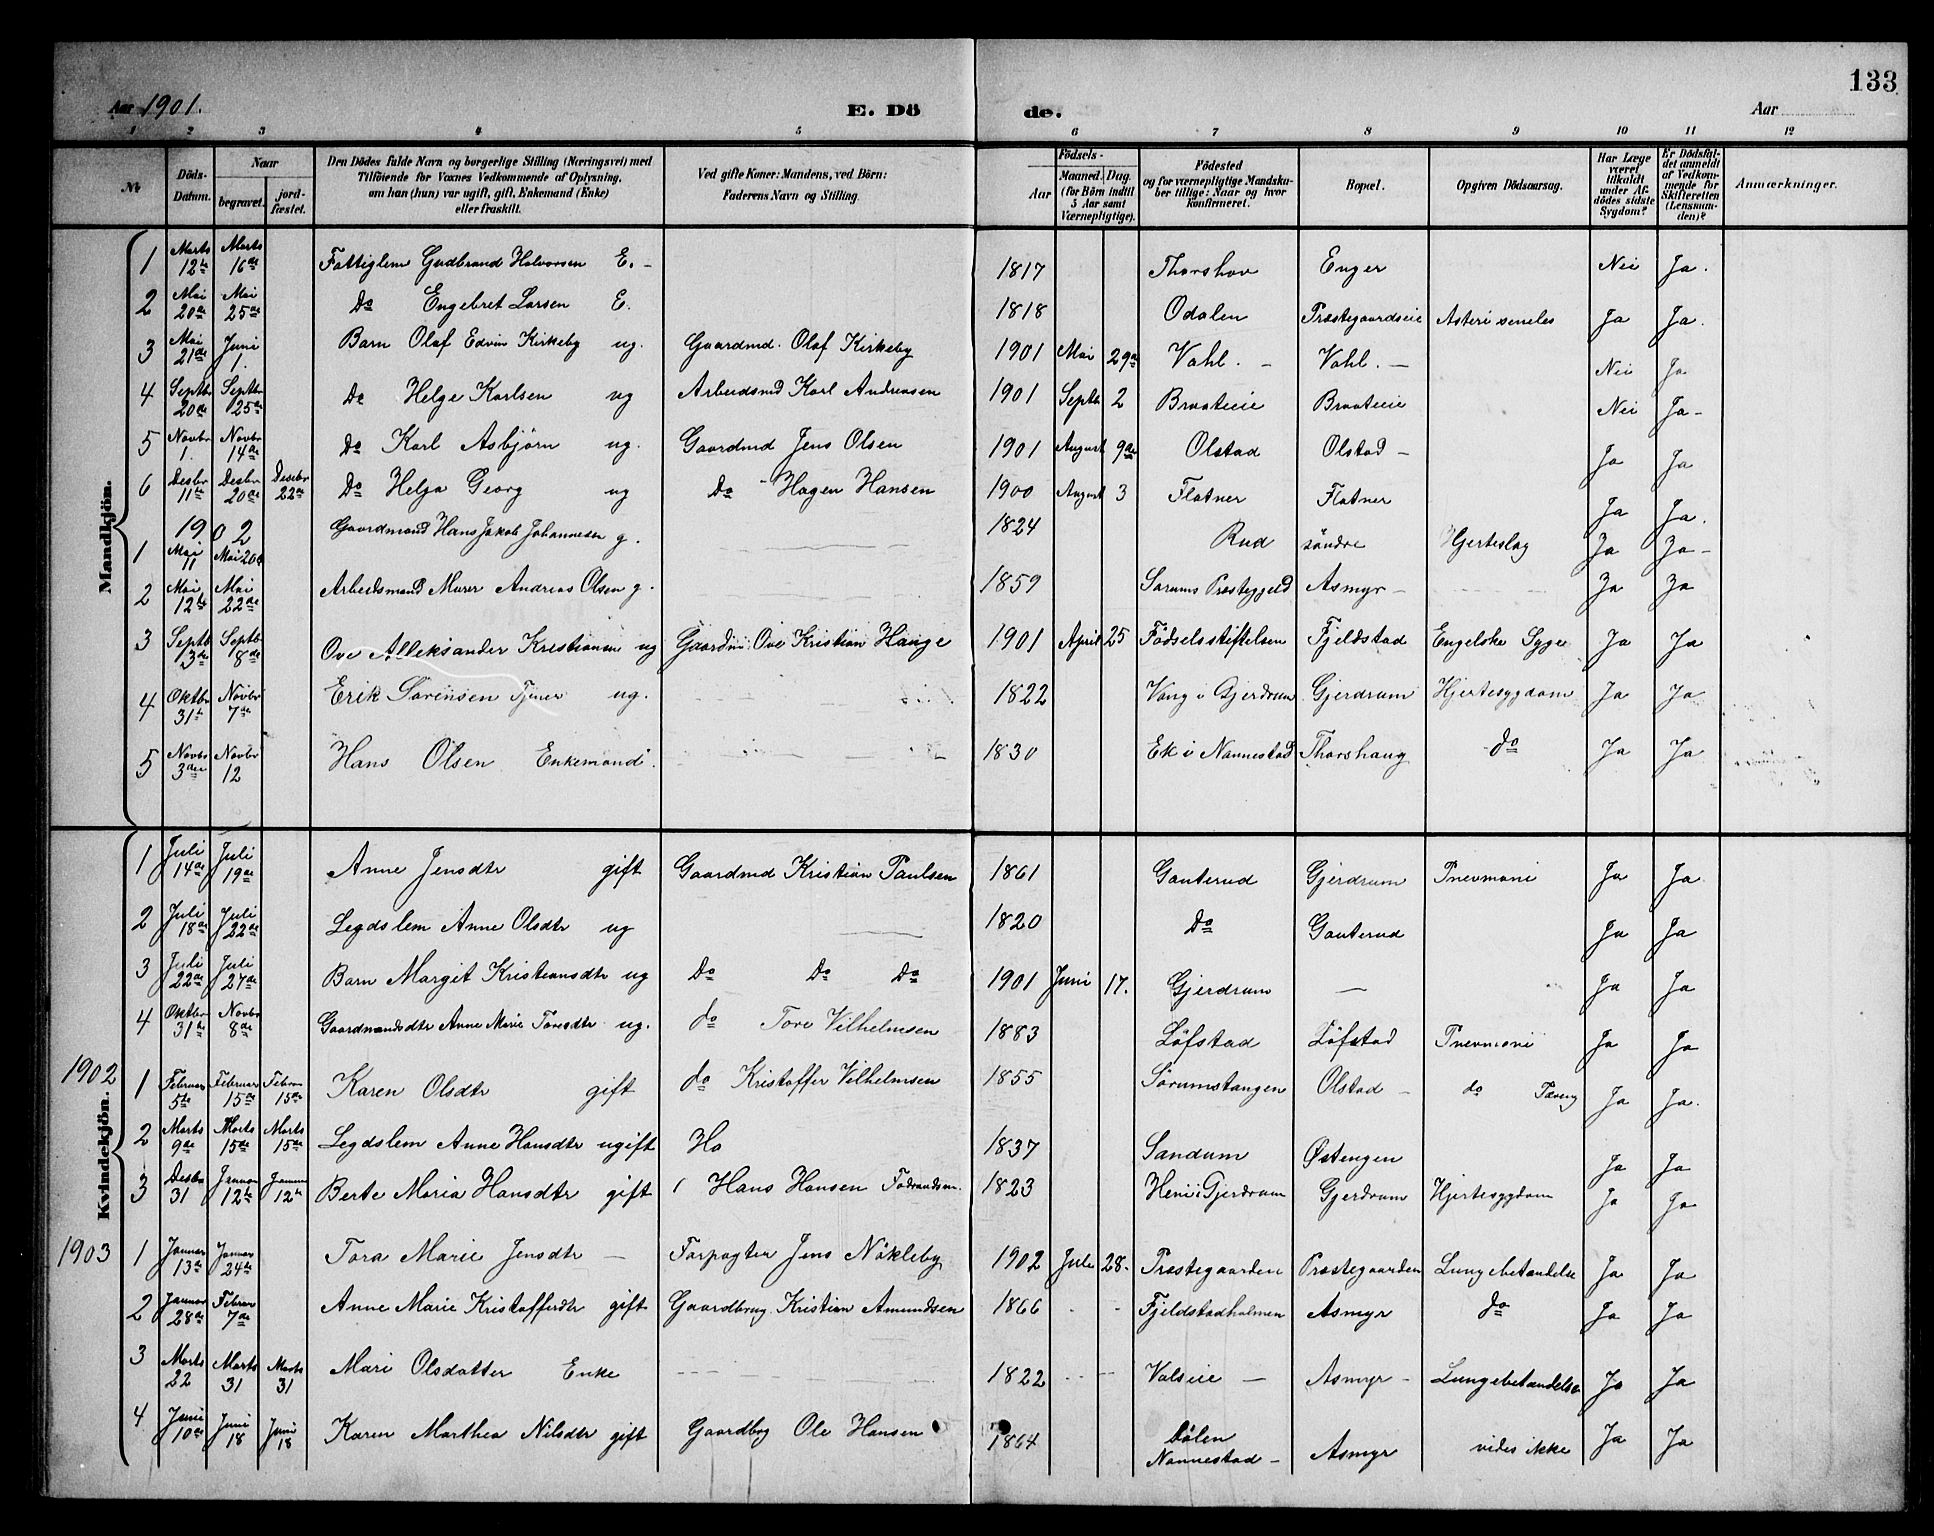 133
Aar 1901. E. Dö de. Aar
1 2 3 4 5 6 7 8 9 10 11 12
№ Döds-Datum. Naar begravet. jord-fæstet. Den Dödes fulde Navn og borgerlige Stilling (Næringsvei) med Tilföiende for Voxnes Vedkommende af Oplysning, om han (hun) var ugift, gift, Enkemand (Enke) eller fraskilt. Ved gifte Koner: Mandens, ved Börn: Faderens Navn og Stilling. Födsels- Aar Maaned. Dag. (for Börn indtil 5 Aar samt Værnepligtige). Födested og for værnepligtige Mandskaber tillige: Naar og hvor konfirmeret. Bopæl. Opgiven Dödsaarsag. Har Læge været tilkaldt under Afdödes sidste Sygdom? Er Dödsfaldet anmeldt af Vedkommende for Skifteretten (Lensmanden)? Anmærkninger.
Mandkjön.
1 Marts 12te Marts 16de Fattiglem Gudbrand Halvorsen E. - 1817 Thorshov Enger Nei Ja.
2 Mai 20de Mai 25de Do Engebret Larsen E. 1818 Odalen Præstegaardseie Ja Ja.
3 Mai 21de Juni 1. Barn Olaf Edvin Kirkeby ug. Gaardmd. Olaf Kirkeby 1901 Mai 29de Vahl. - Vahl. - Nei Ja
4 Septbr 20de Septbr 25de Do Helge Karlsen ug Arbeidsmd Karl Andreasen 1901 Septb. 2 Braateeie Braateeie Nei Ja-
5 Novbr 1. Novbr 14de Do Karl Asbjørn ug. Gaardmd Jens Olsen 1901 August 9de Olstad Olstad - Ja Ja
6 Desbr 11te Desbr 20de Desebr 22de Do Helge Georg ug Do Hagen Hansen 1900 August 3 Flatner Flatner Ja Ja.
1902
1 Mai 11 Mai 20de Gaardmand Hans Jakob Johannesen g. 1824 Rud søndre Hjerteslag Ja Ja-
2 Mai 12te Mai 22de Arbeidsmand Murer Andreas Olsen g. 1859 Sørums Præstegjeld Asmyr - Ja Ja
3 Septb 3de Septbr 8de Ove Alleksander Kristiansen ug Gaardm: Ove Kristian Hauge 1901 April 25 Födselsstiftelsen Fjeldstad Engelske Syge Ja Ja
4 Oktbr 31te Novbr 7de Erik Sørensen Tjener ug. 1822 Vang i Gjerdrum Gjerdrum Hjertesygdom Ja Ja
5 Novbr 3die Novbr 12 Hans Olsen Enkemand. 1830 Ek i Nannestad Thorshaug do Ja Ja
Kvindekjön.
1 Juli 14de Juli 19de Anne Jensdtr gift Gaardmd Kristian Paulsen 1861 Gauterud Gjerdrum Pnevmoni Ja Ja.
2 Juli 18de Juli 22de Legdslem Anne Olsdtr ug 1820 Do Gauterud Ja Ja
3 Juli 22de Juli 27de Barn Margit Kristiansdtr ug Do Do Do 1901 Juni 17. Gjerdrum - Ja Ja
4 Oktbr 31te Novbr 8de Gaardmandsdtr Anne Marie Toresdtr ug. do Tore Vilhelmsen 1883 Løfstad Løfstad Pnevmoni Ja Ja
1902
1 Februar 5te Februar 15de Febru 15de Karen Olsdtr gift do Kristoffer Vilhelmsen 1855 Sørumstangen Olstad - do Tæring Ja Ja.
2 Marts 9de Marts 15de Marts 15de Legdslem Anne Hansdtr ugift 1837 Sandum Østengen Ja Ja
3 Desbr 31 Januar 12te Januar 12te Berte Maria Hansdtr gift Hans Hansen Föderaadsm. 1823 Heni i Gjerdrum Gjerdrum Hjertesygdom Ja Ja
1903
1 Januar 13de Januar 24de Tora Marie Jensdtr - Forpagter Jens Nökleby 1902 Juli 28. Præstegaarden Præstegaarden Lungebetændelse Ja Ja
2 Januar 28de Februar 7de Anne Marie Kristofferdtr gift Gaardbrug. Kristian Amundsen 1866 Fjeldstadholmen Asmyr do Ja Ja
3 Marts 22 Marts 31 Marts 31 Mari Olsdatter Enke 1822 Valseie - Asmyr - Lungebetændelse Ja Ja
4 Juni 10de Juni 18 Juni 18 Karen Marthea Nilsdtr gift Gaardbrg Ole Hansen 1864 Dølen Nannestad - Asmyr vides ikke Ja Ja